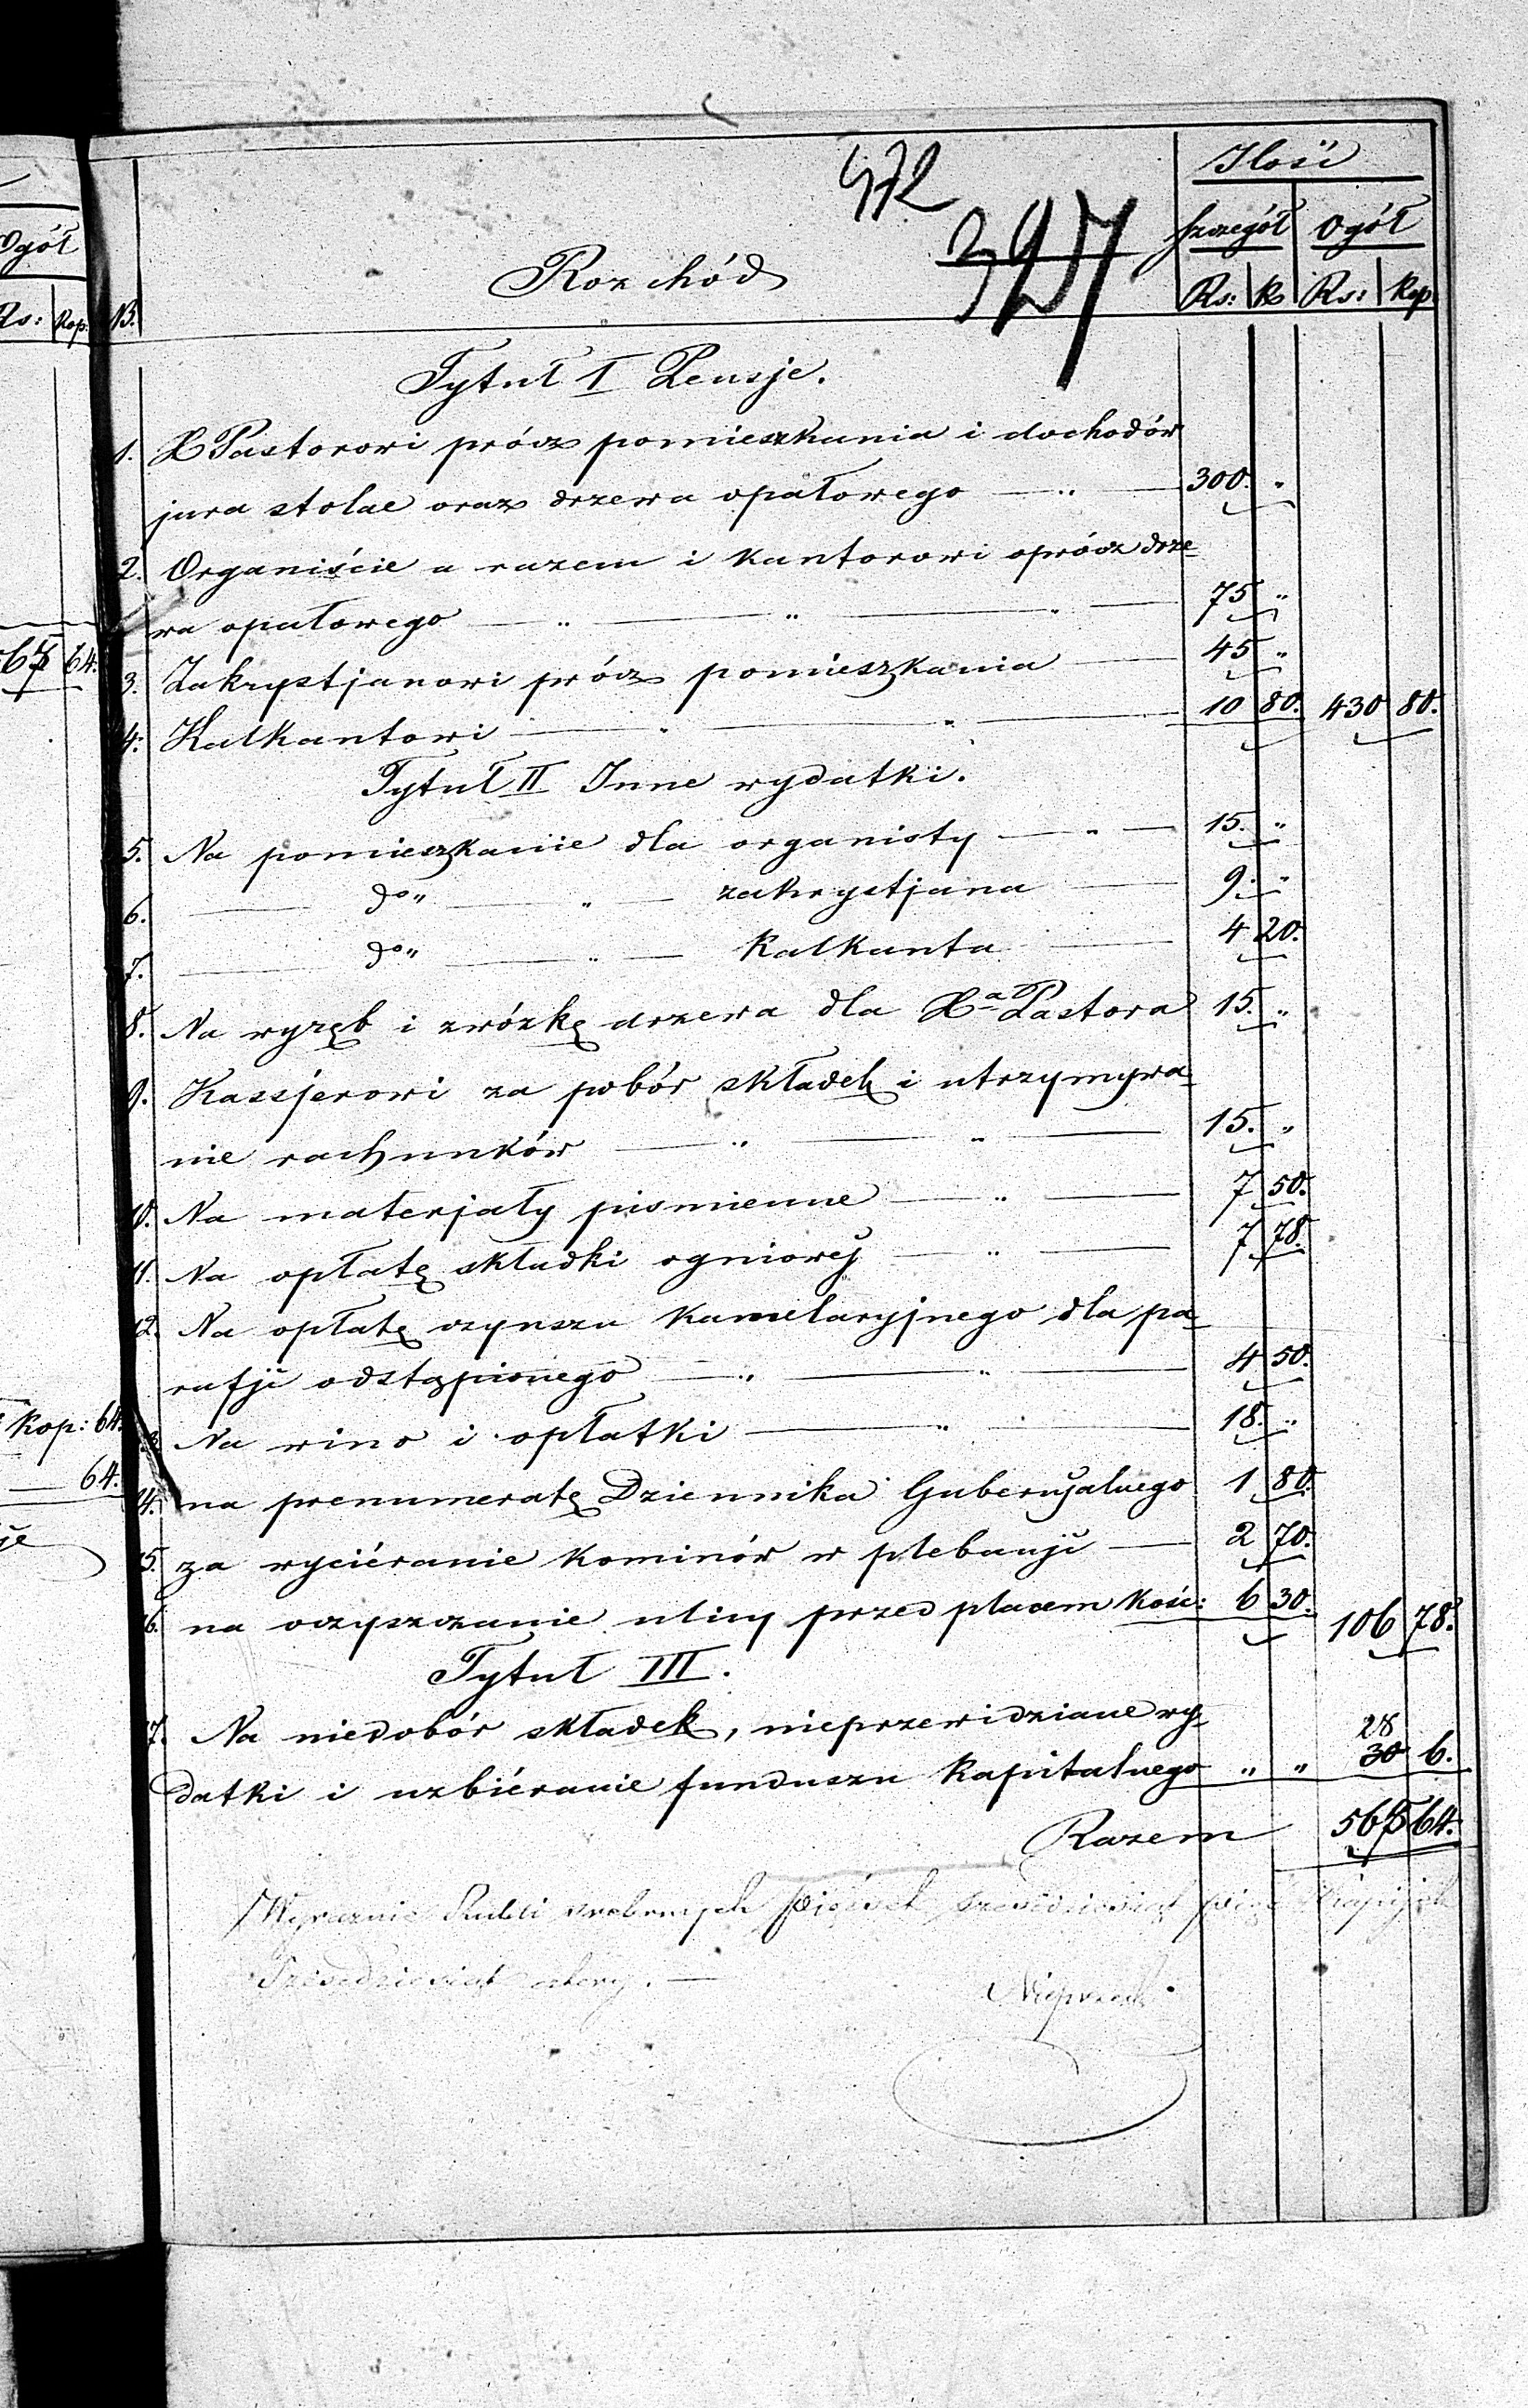 Ogół
Rs: Kop:
565 64.
Kop: 64.
64.
472
397
Ilość
Szczegół Ogół
Rozchód
N. Rs: K Rs: Kop
Tytuł I Pensje.
1. X Pastorowi prócz pomieszkania i dochodów
jura stolae oraz drzewa opałowego — " — 300. "
2. Organiście a razem i kantorowi oprócz drze-
wa opałowego — " — " — " — 75 "
3. Zakrystjanowi prócz pomieszkania — 45 "
4. Kalkantowi — " — " — 10 80. 430 80.
Tytuł II Inne wydatki.
5. Na pomieszkanie dla organisty — " — 15. "
6. — do " — " — zakrystjana — 9. "
7. — do " — " — Kalkanta — 4 20.
8. Na wyręb i zwózkę drzewa dla Xa Pastora 15. "
9. Kassjerowi za pobór składek i utrzymywa-
nie rachunków — " — " — 15. "
10. Na materjały pismienne — " — 7 50.
11. Na opłatę składki ogniowej — " — 7 78.
12. Na opłatę czynszu kamelaryjnego dla pa-
rafji odstąpionego — " — " — 4 50.
13. Na wino i opłatki — " — 18. "
14. na prenumeratę Dziennika Gubernjalnego 1 80.
15. za wyciéranie kominów w plebanji — 2 70.
16. na oczyszczanie ulicy przed placem kość: 6 30. 106 78.
Tytuł III.
17. Na niedobór składek, nieprzewidziane wy-
28
datki i uzbiéranie funduszu kapitalnego " " 30 6.
Razem 565 64.
Wyraznie Rubli srebrnych pięćset sześćdziesiąt pięć Kopijek
Sześćdziesiąt cztery. —